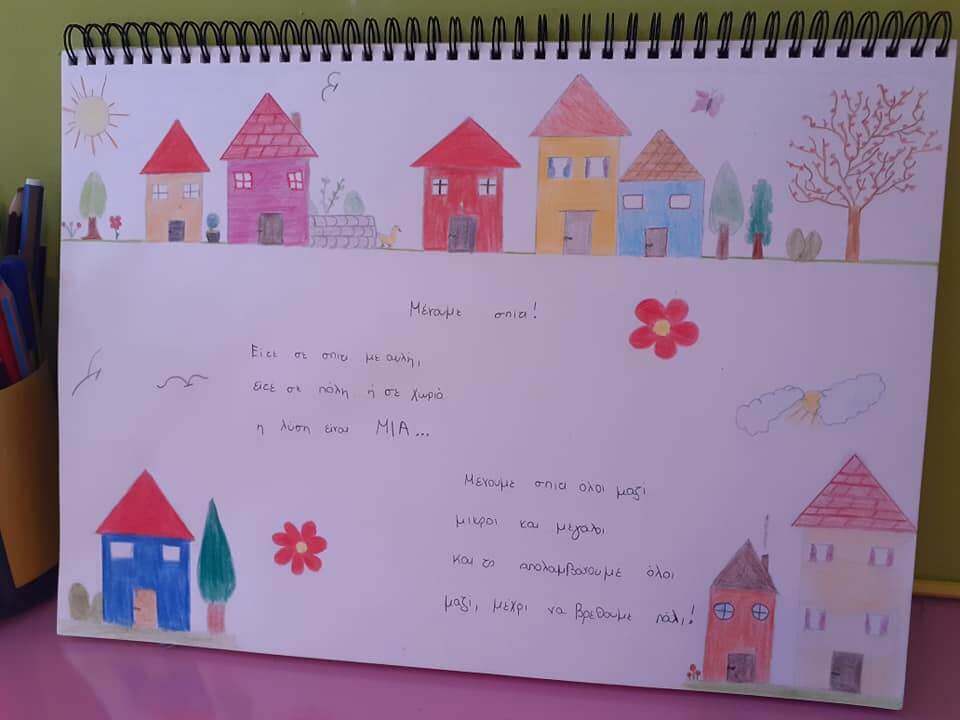 Μένουμε σπιτι!
Είτε σε σπιτι με αυλή,
είτε σε πόλη ή σε χωριό
η λυση είναι ΜΙΑ...
Μένουμε σπιτι όλοι μαζί
μικροι και μεγαλοι
και το απολαμβανουμε όλοι
μαζί, μεχρι να βρεθουμε πάλι!